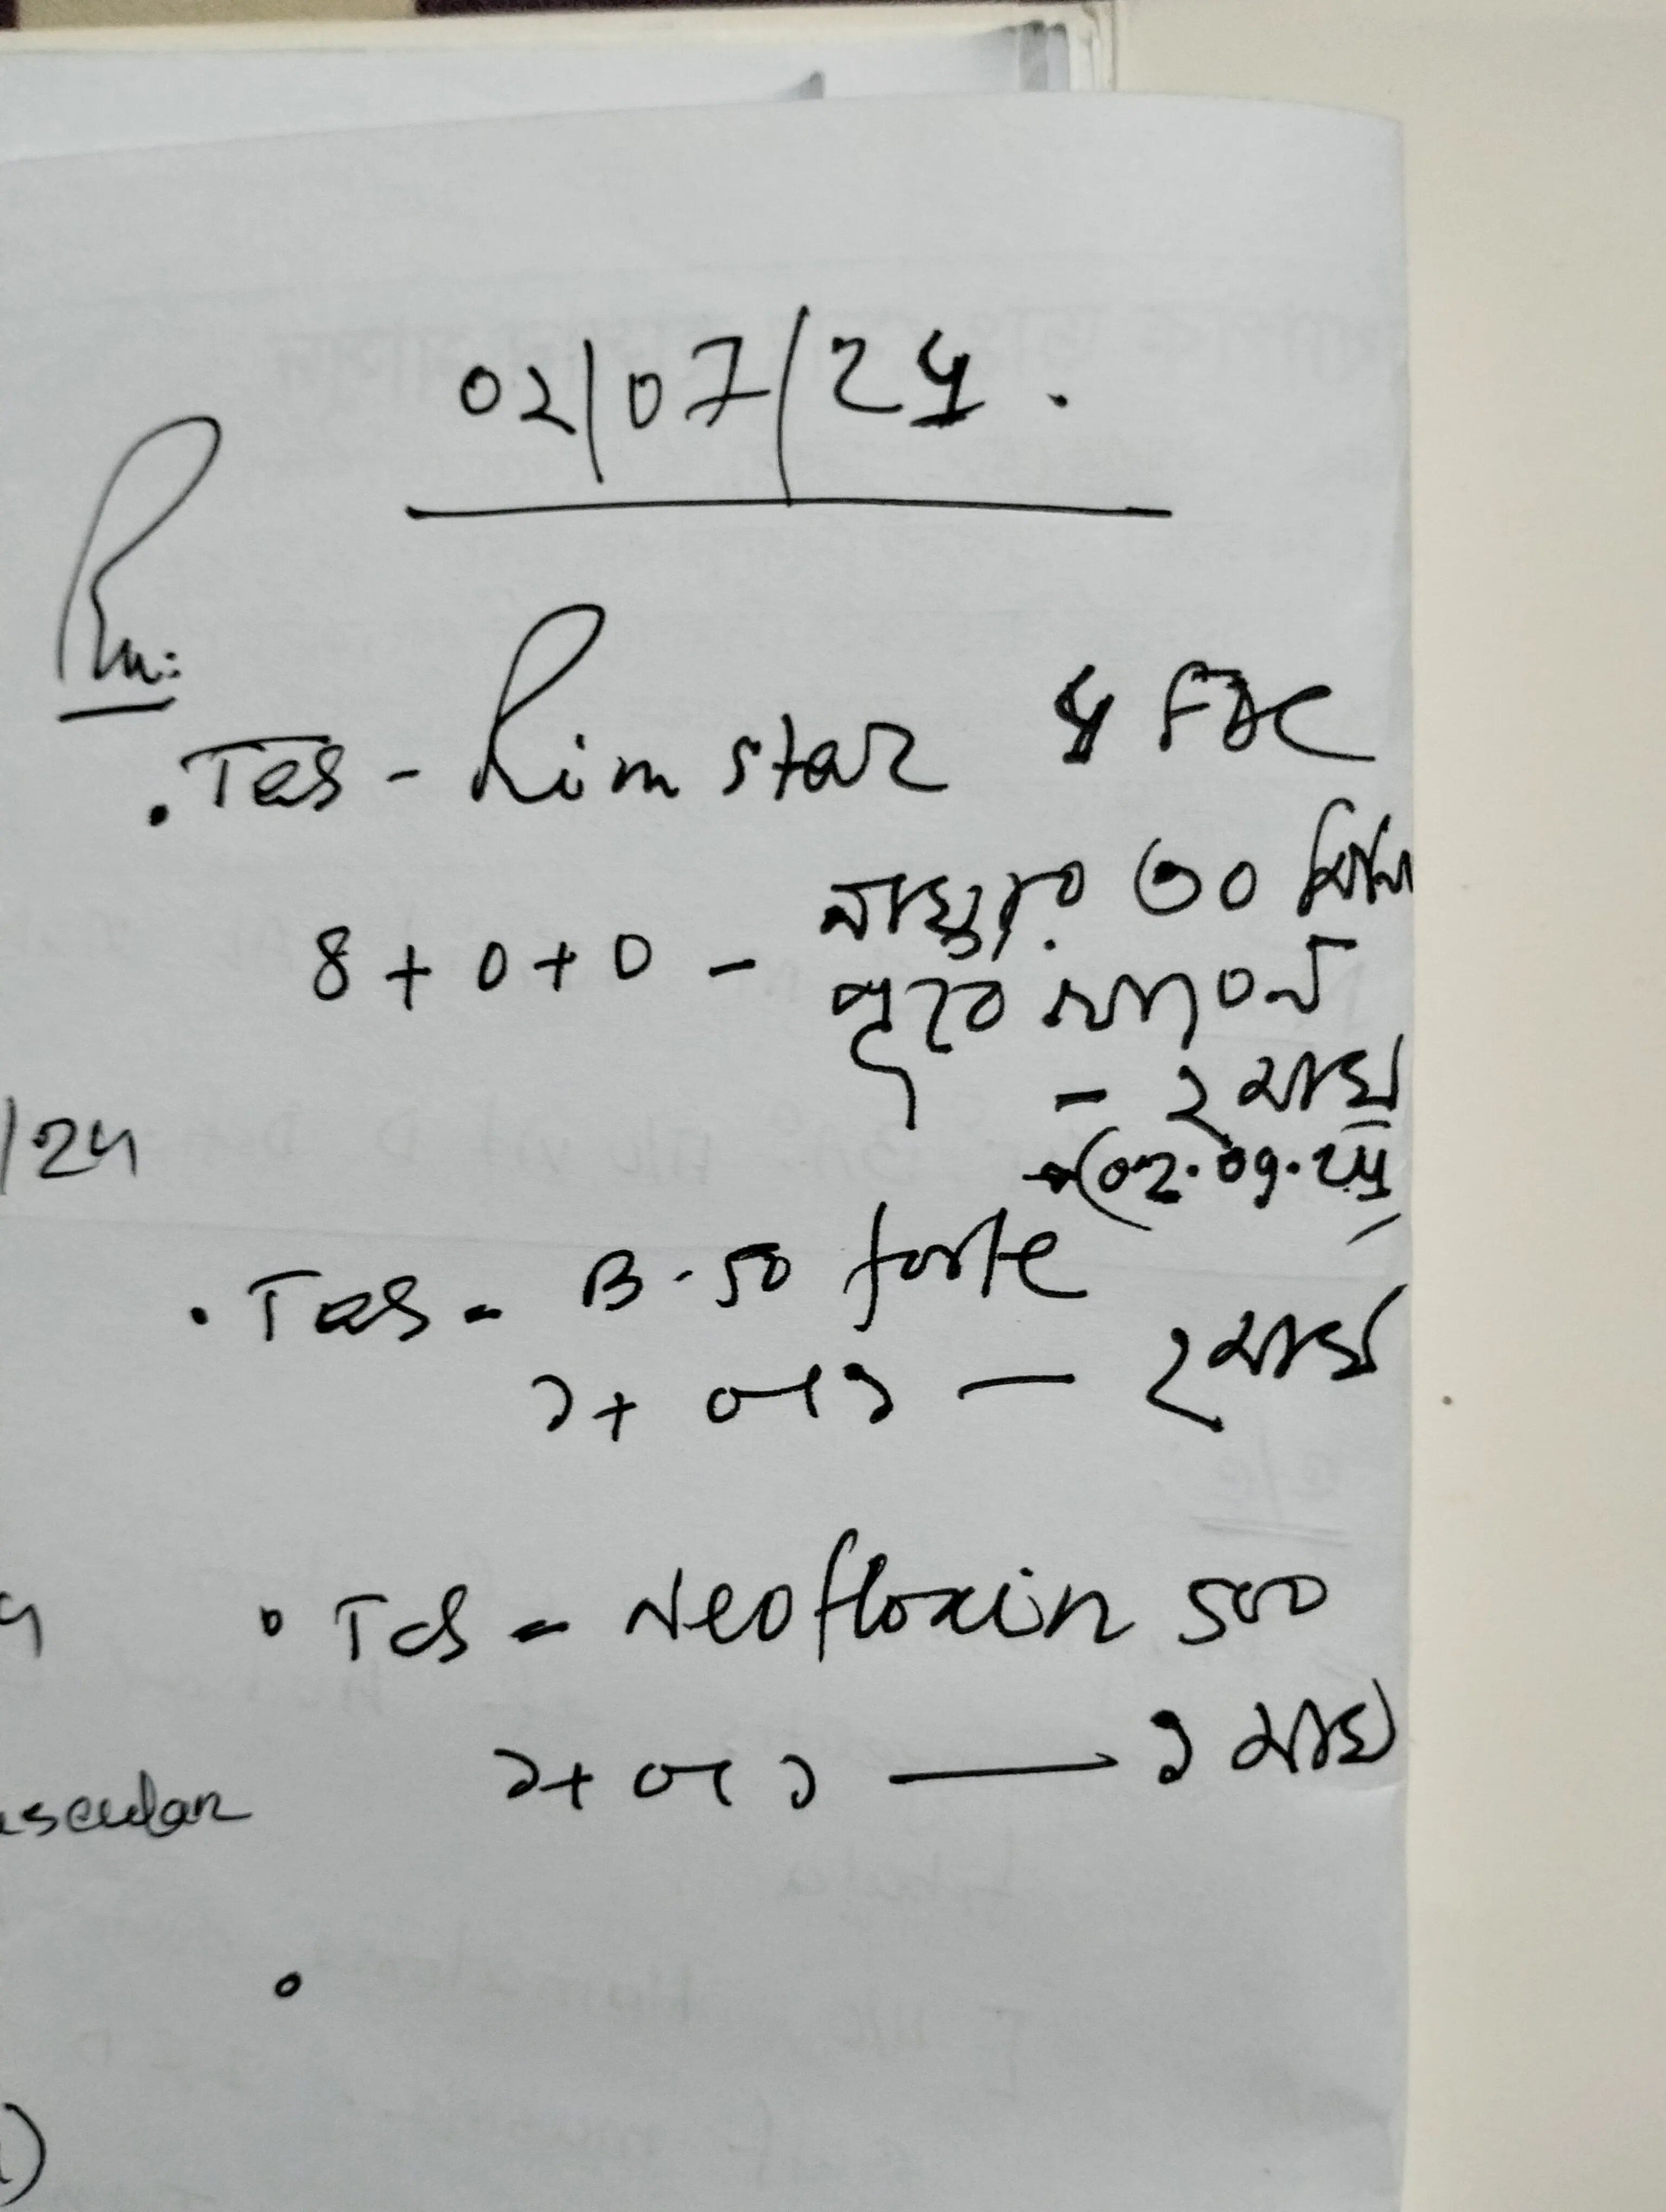 02/07/24.
Rx:
. Tab - Rimstar 4 FDC
৪ + ০ + ০ - নাস্তার ৩০ মিনিট
পূর্বে খাবেন
- ২ মাস
→ (02.09.24
/24
. Tab - B-50 forte
১+ ০+১ — ২ মাস
. Tab - Neofloxin 500
১+ ০+১ — ১ মাস